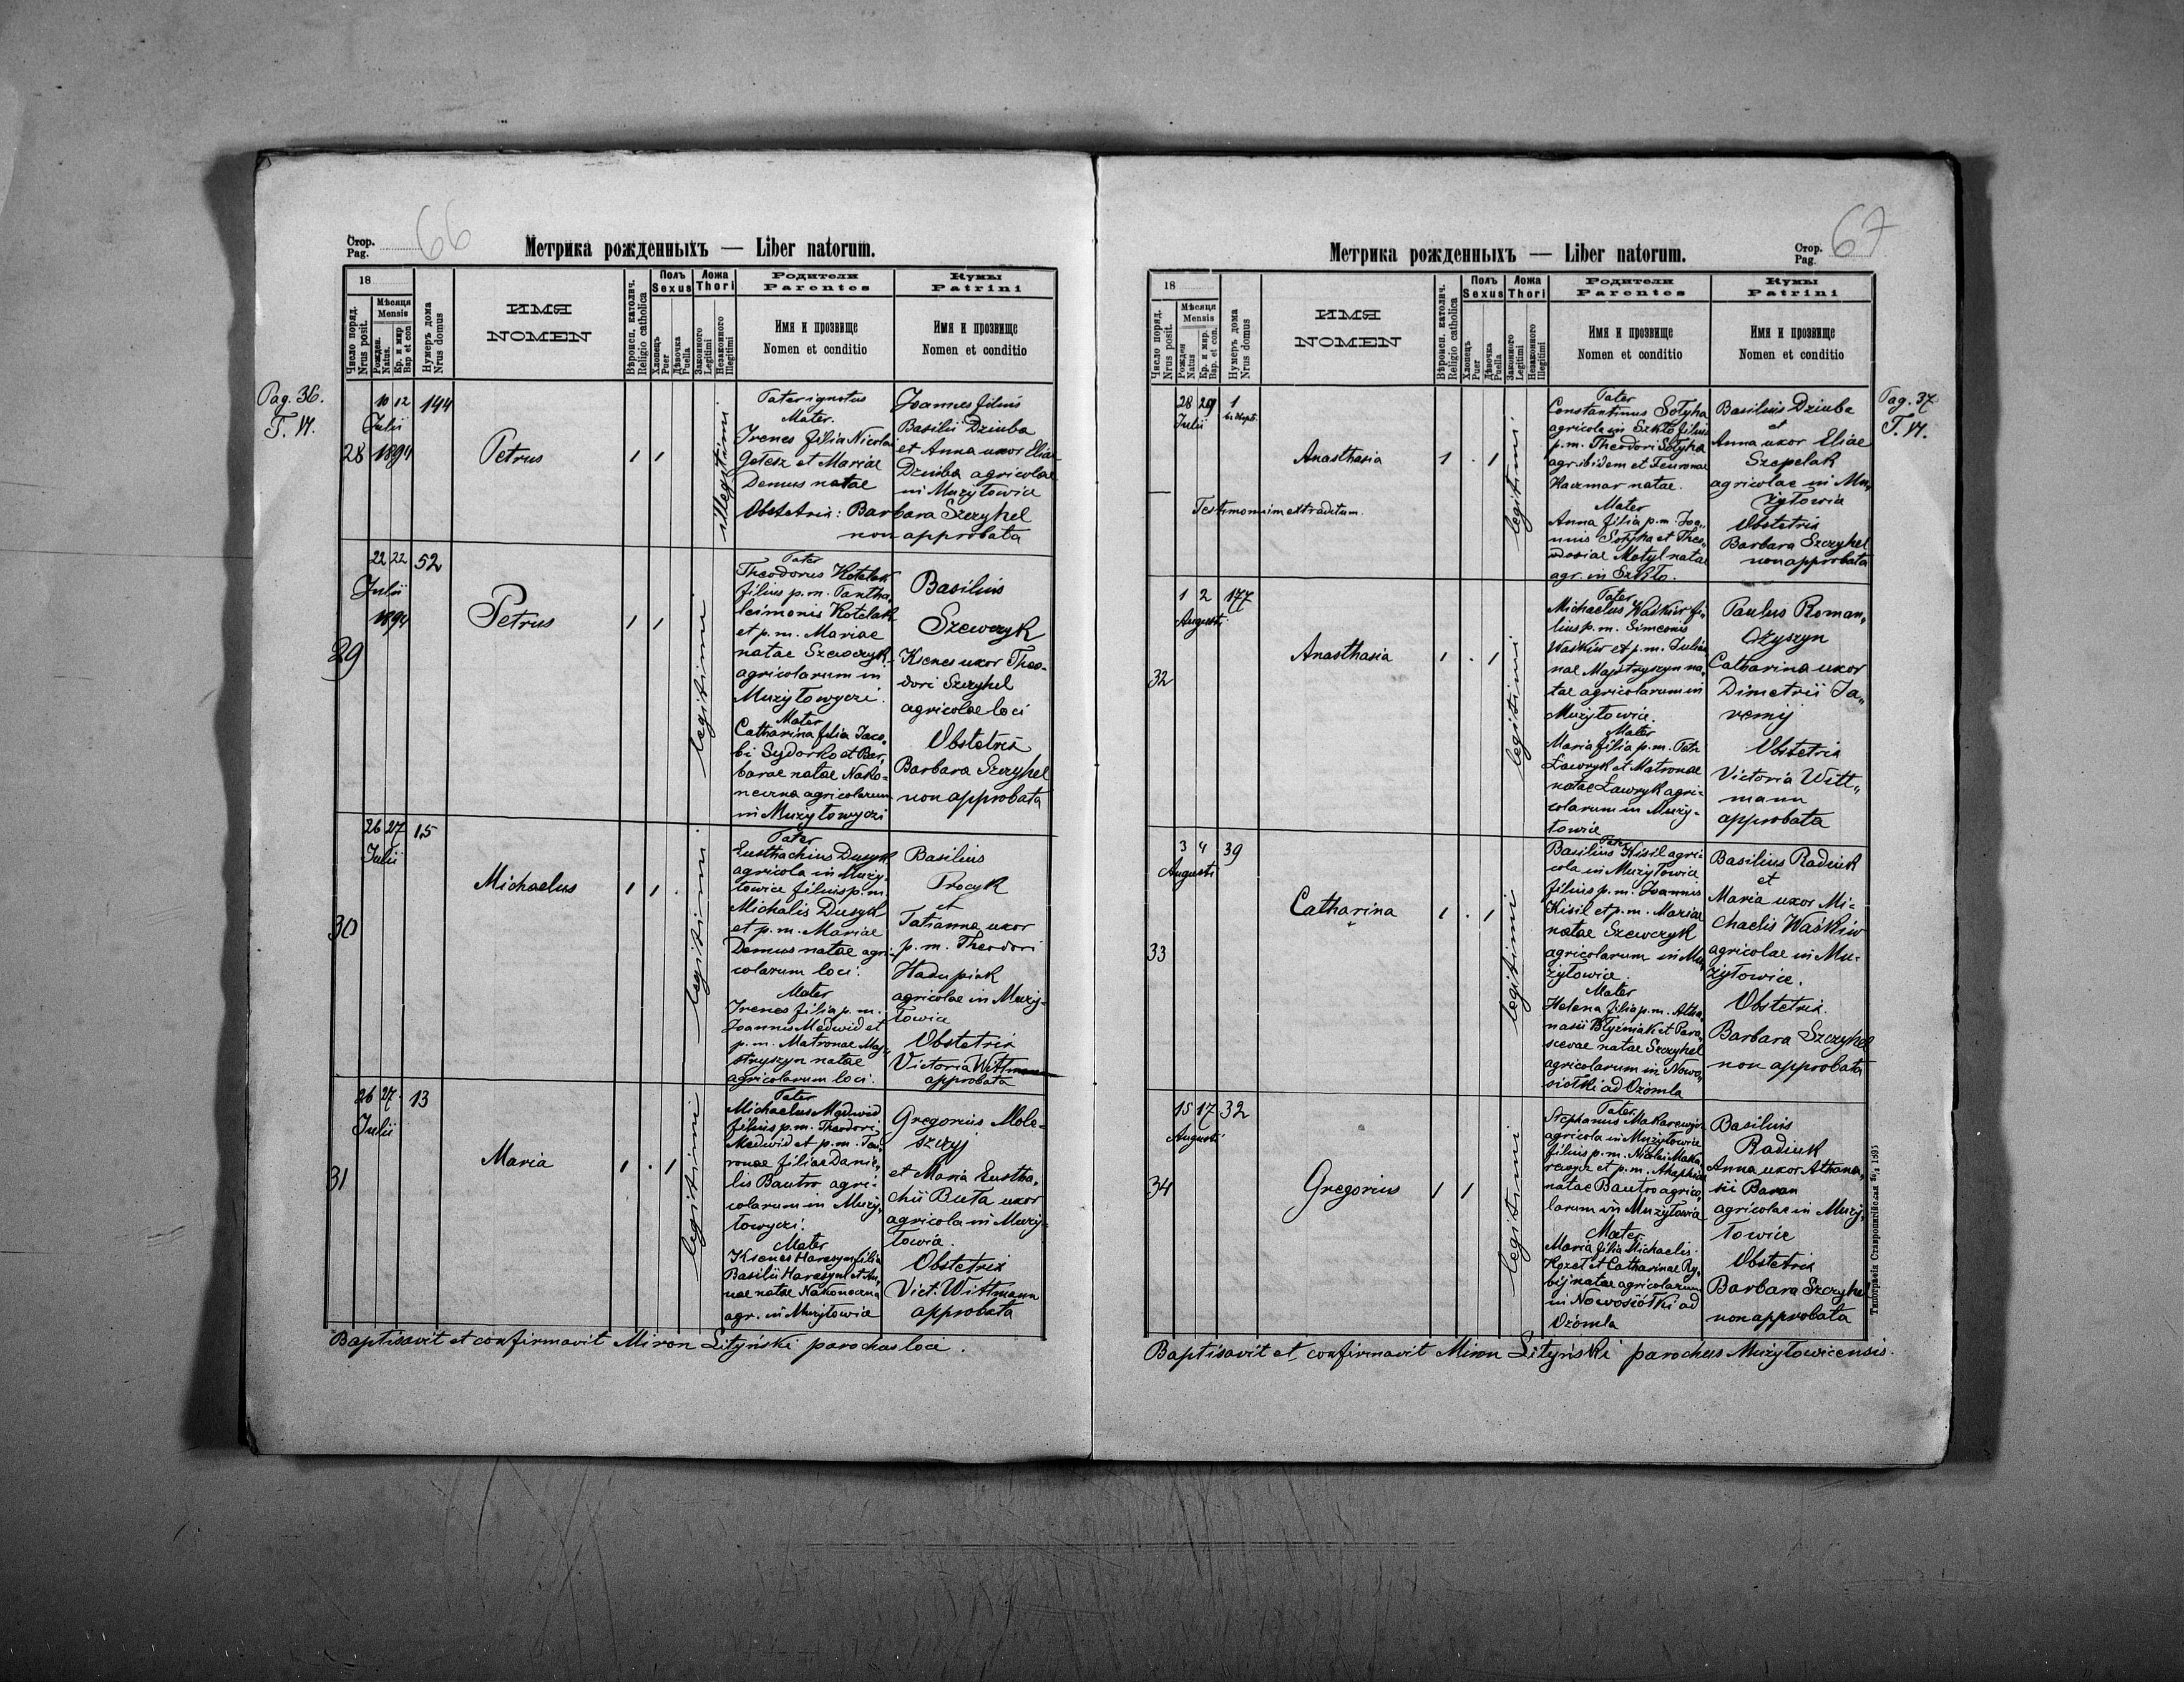 Стор.
Pag.
66
Метрика рожденныхъ — Liber natorum.
18
Число поряд.
Nrus posit.
Мѣсяця
Mensis
Рожден.
Natus.
Кр. и мир
Bap et con
Нумеръ дома
Nrus domus
ИМЯ
NOMEN
Вѣроисп. католич.
Religio catholica
Полъ
Sexus
Хлопець
Puer
Дѣвочка
Puella
Ложа
Thori
Законного
Legitimi
Незаконного
Illegitimi
Родители
Parentes
Имя и прозвище
Nomen et conditio
Кумы
Patrini
Имя и прозвище
Nomen et conditio
Pag. 36.
T. VI.
28
10 12
Julii
1894
144
Petrus
1 1
illegitimi
Pater ignotus
Mater.
Irenes filia Nicolai
Gotesz et Mariae
Demus natae
Joannes filius
Basilii Dziuba
et Anna uxor Eliae
Dziuba agricolae
in Mużyłowice
Obstetrix: Barbara Szczyhel
non approbata
29
22 22
Julii
1894
52
Petrus
1 1
legitimi
Pater
Theodorus Kotelak
filius p.m. Pantha,
leimonis Kotelak
et p.m. Mariae
natae Szewczyk
agricolarum in
Mużyłowyczi.
Mater
Catharina filia Jaco,
bi Sydorko et Bar,
barae natae Nako-
neczna agricolarum
in Mużyłowyczi
Basilius
Szewczyk
Ksenes uxor Theo-
dori Szczyhel
agricolae loci
Obstetrix
Barbara Szczyhel
non approbata
30
26 27
Julii
15
Michaelus
1 1 .
legitimi
Pater
Eusthachius Dusyk
agricola in Muży-
łowice filius p.m.
Michalis Dusyk
et p.m. Mariae
Demus natae agri-
colarum loci.
Mater
Irenes filia p.m.
Joannis Medwid et
p.m. Matronae Maj-
stryszyn natae
agricolarum loci.
Basilius
Procyk
et
Tatianna uxor
p.m. Theodori
Hadupiak
agricolae in Muży-
łowice
Obstetrix
Victoria Wittmann
approbata
31
26 27
Julii
13
Maria
1 . 1
legitimi
Pater
Michaelus Medwid
filius p.m. Theodori
Medwid et p.m. Feu-
ronae filiae Danie,
lis Bautro agri-
colarum in Muży,
łowyczi.
Mater
Ksenes Harasym filia
Basilii Harasym et An,
nae natae Nakoneczna
agr. in Mużyłowice
Gregorius Mole-
szczyj
et Maria Eustha,
chii Buta uxor
agricola in Muży-
łowice.
Obstetrix
Vict. Wittmann
approbata
Baptisavit et confirmavit Miron Lityński parochus loci.
Метрика рожденныхъ — Liber natorum.
Стор.
Pag.
67
18
Число поряд.
Nrus posit.
Мѣсяця
Mensis
Рожден
Natus
Кр. и мир.
Bap. et con.
Нумеръ дома
Nrus domus
ИМЯ
NOMEN
Вѣроисп. католич.
Religio catholica
Полъ
Sexus
Хлопець
Puer
Дѣвочка
Puella
Ложа
Thori
Законного
Legitimi
Незаконного
Illegitimi
Родители
Parentes
Имя и прозвище
Nomen et conditio
Кумы
Patrini
Имя и прозвище
Nomen et conditio
Pag. 37.
T. VI.
28 29
Julii
1
Anasthasia
1 . 1
legitimi
Testimonium extraditum.
Pater
Constantinus Sołyha
agricola in Szkło filius
p.m. Theodori Sołyha
agr ibidem et Feuronae
Kaczmar natae.
Mater
Anna filia p.m. Joa,
nnis Sołyha et Theo,
dosiae Motyl natae
agr. in Szkło.
Basilius Dziuba
et
Anna uxor Eliae
Szepelak
agricolae in Mu,
żyłowice
Obstetrix
Barbara Szczyhel
non approbata
32
1 2
Augusti
177
Anasthasia
1 . 1
legitimi
Pater
Michaelus Waśkiw fi-
lius p.m. Simeonis
Waśkiw et p.m. Julian
nae Majstryszyn na-
tae agricolarum in
Mużyłowice.
Mater
Maria filia p.m. Petri
Ławryk et Matronae
natae Ławryk agri-
colarum in Muży-
łowice
Paulus Roman,
czyszyn
Catharina uxor
Dimetrii Ja,,
remij
Obstetrix
Victoria Witt,,
mann
approbata
33
3 4
Augusti
39
Catharina
1 . 1
legitimi
Pater
Basilius Kisil agri-
cola in Mużyłowice
filius p.m. Joannis
Kisil et p.m. Mariae
natae Szewczyk
agricolarum in Mu,
żyłowice.
Mater
Helena filia p.m. Atha,
nasii Błyzniak et Para,
scevae natae Szczyhel
agricolarum in Nowo,
siołki ad Ożomla
Basilius Radiuk
et
Maria uxor Mi-
chaelis Waśkiw
agricolae in Mu-
żyłowice.
Obstetrix.
Barbara Szczyhel
non approbata
34
15 17
Augusti
32
Gregorius
1 1
legitimi
Pater
Stephanus Makarewycz
agricola in Mużyłowice
filius p.m. Nicolai Maka-
rewycz et p.m. Ahaphia
natae Bautro agrico,
larum in Mużyłowice
Mater
Maria filia Michaelis
Kozet et Catharinae Ry,
bij natae agricolarum
in Nowosiółki ad
Ożomla
Basilius
Radiuk
Anna uxor Athana,
sii Baran
agricolae in Muży,
łowice
Obstetrix
Barbara Szczyhel
non approbata
Baptisavit et confirmavit Miron Lityński parochus Mużyłowicensis.